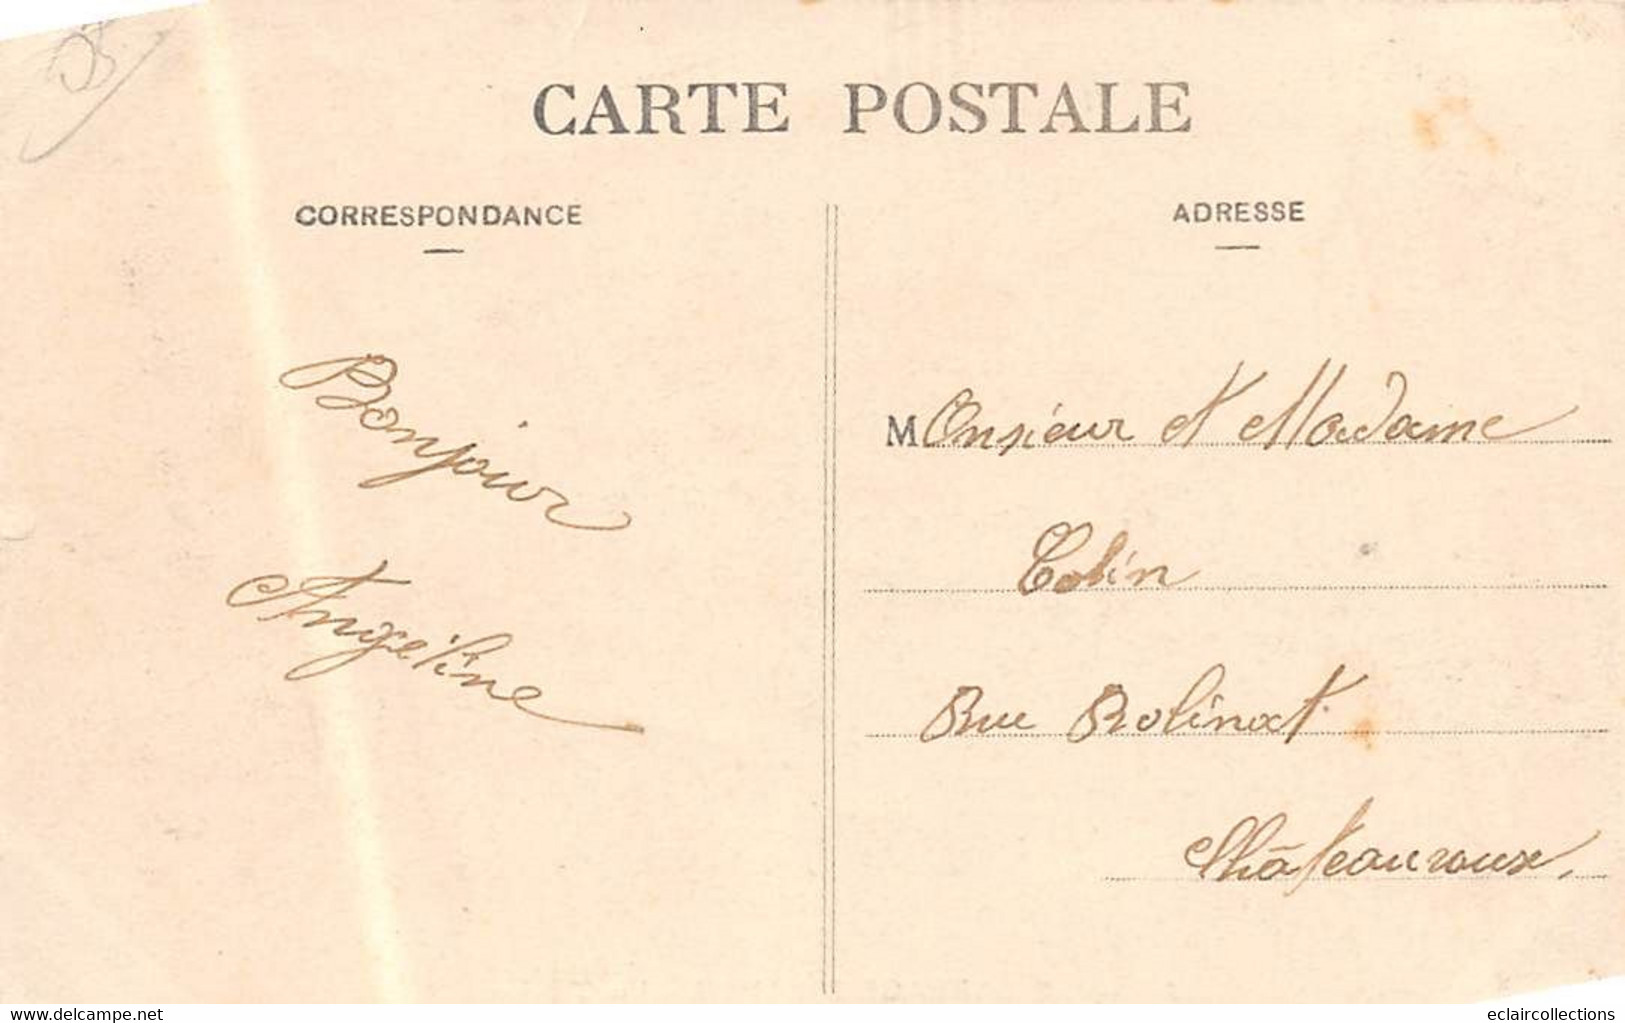 CARTE POSTALE
CORRESPONDANCE
ADRESSE
Bonjour
Angéline
Monsieur et Madame
Colin
Rue Rolinat
Châteauroux,
www.delcampe.net
eclaircollections